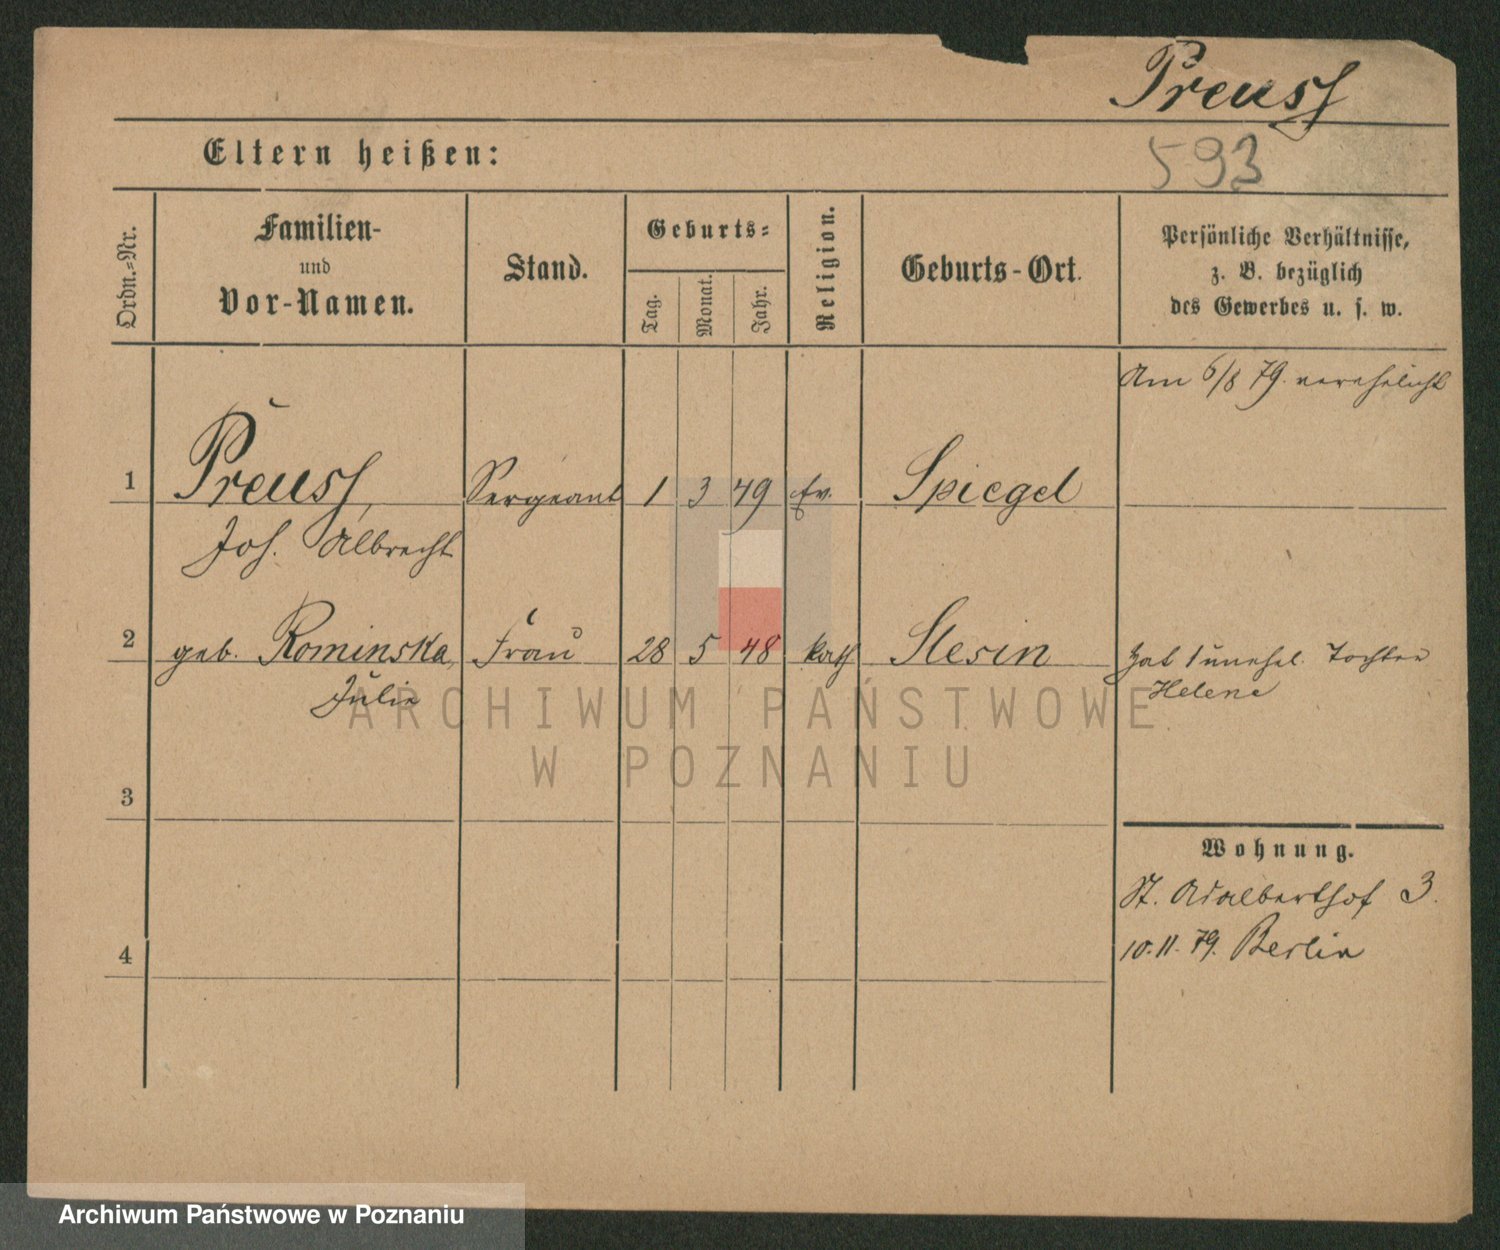 Preuss
Eltern heißen:
593
Ordn.-Nr.
Familien-
und
Vor-Namen.
Stand.
Geburts-
Tag.
Monat.
Jahr.
Religion.
Geburts-Ort.
Persönliche Verhältnisse,
z. B. bezüglich
des Gewerbes u. s. w.
Am 6/8 79. verehelicht
1 Preuss, Sergeant 1 3 49 Ev. Spiegel
Joh. Albrecht
2 geb. Rominska, Frau 28 5 48 kath Slesin hat 1 unehel. Tochter
Julie Helene
ARCHIWUM PAŃSTWOWE
W POZNANIU
3
Wohnung.
St. Adalberthof 3.
4 10.11.79. Berlin
Archiwum Państwowe w Poznaniu